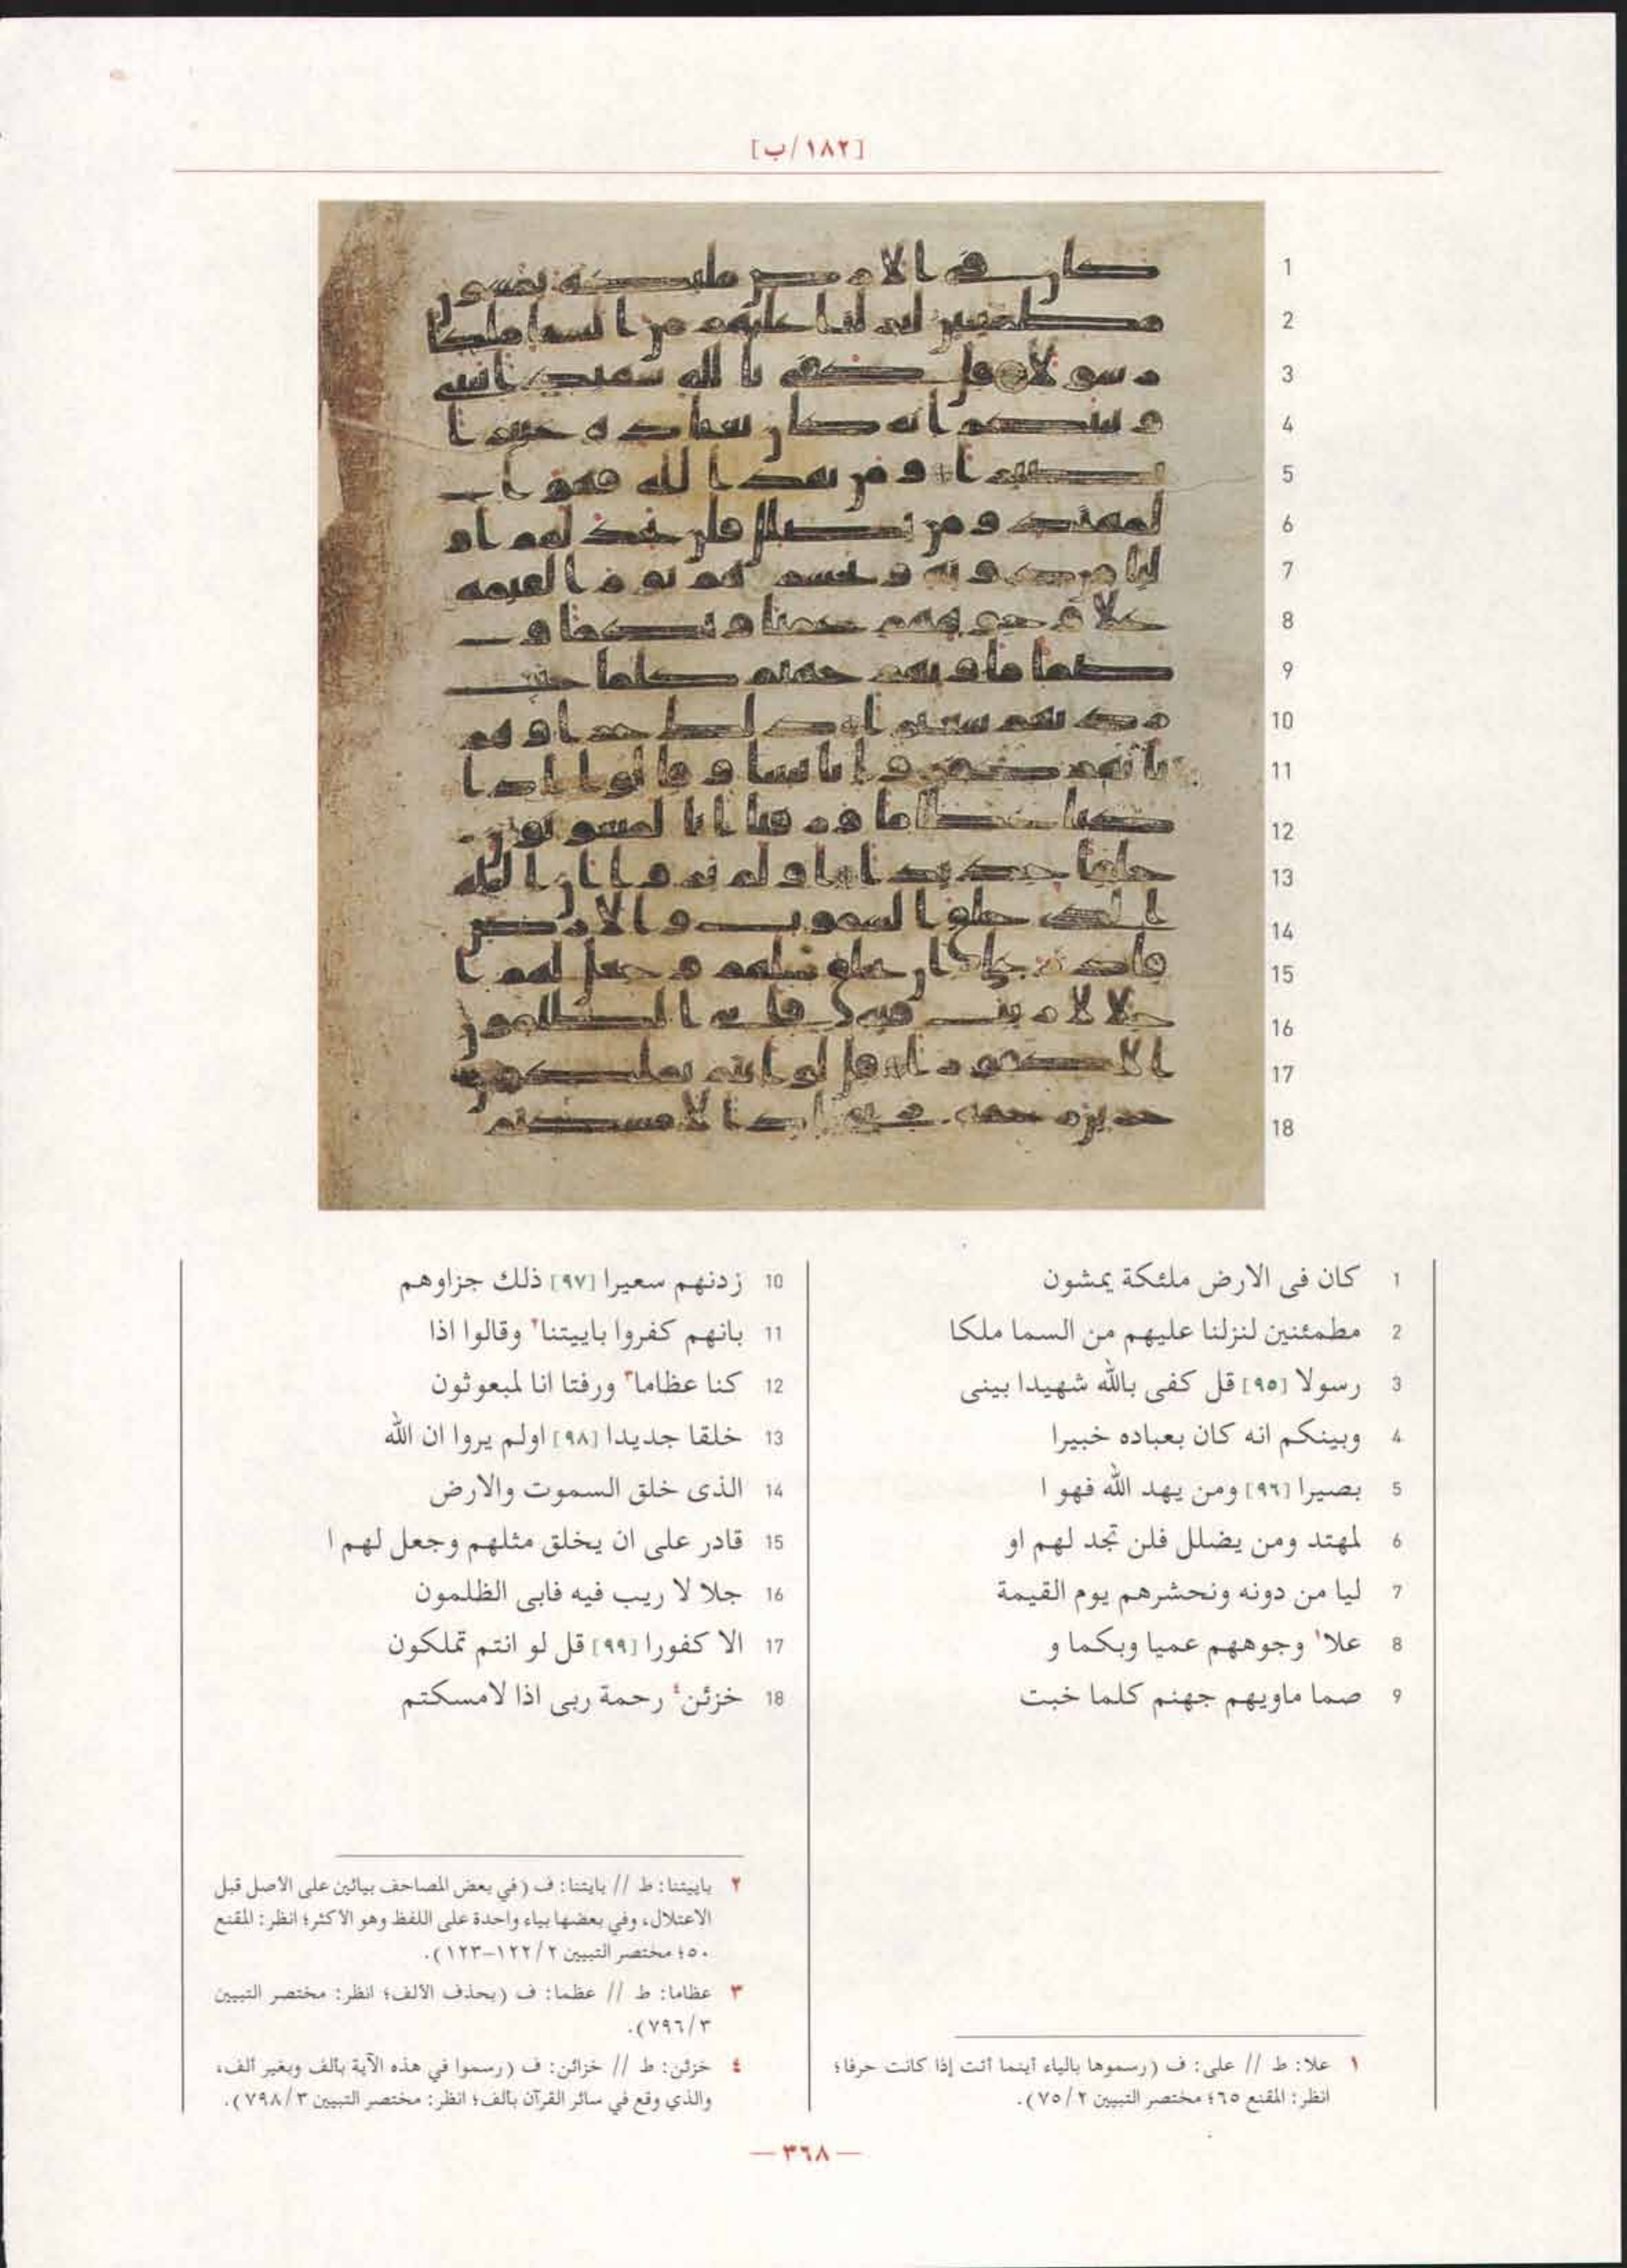 [١٨٢/ب]
1
2
3
4
5
6
7
8
9
10
11
12
13
14
15
16
17
18
1 كان فى الارض ملئكة يمشون
2 مطمئنين لنزلنا عليهم من السما ملكا
3 رسولا [٩٥] قل كفى بالله شهيدا بينى
4 وبينكم انه كان بعباده خبيرا
5 بصيرا [٩٦] ومن يهد الله فهو ا
6 لمهتد ومن يضلل فلن تجد لهم او
7 ليا من دونه ونحشرهم يوم القيمة
8 علا١ وجوههم عميا وبكما و
9 صما ماويهم جهنم كلما خبت
10 زدنهم سعيرا [٩٧] ذلك جزاوهم
11 بانهم كفروا باييتنا٢ وقالوا اذا
12 كنا عظاما٣ ورفتا انا لمبعوثون
13 خلقا جديدا [٩٨] اولم يروا ان الله
14 الذى خلق السموت والارض
15 قادر على ان يخلق مثلهم وجعل لهم ا
16 جلا لا ريب فيه فابى الظلمون
17 الا كفورا [٩٩] قل لو انتم تملكون
18 خزئن٤ رحمة ربى اذا لامسكتم
١ علا: ط // على: ف (رسموها بالياء أينما أتت إذا كانت حرفا؛
انظر: المقنع ٦٥؛ مختصر التبيين ٧٥/٢).
٢ باييتنا: ط // بايتنا: ف (في بعض المصاحف بيائين على الاصل قبل
الاعتلال، وفي بعضها بياء واحدة على اللفظ وهو الاكثر؛ انظر: المقنع
٥٠؛ مختصر التبيين ١٢٢/٢–١٢٣).
٣ عظاما: ط // عظما: ف (بحذف الألف؛ انظر: مختصر التبيين
٧٩٦/٣).
٤ خزئن: ط // خزائن: ف (رسموا في هذه الآية بألف وبغير ألف،
والذي وقع في سائر القرآن بألف؛ انظر: مختصر التبيين ٧٩٨/٣).
— ٣٦٨ —